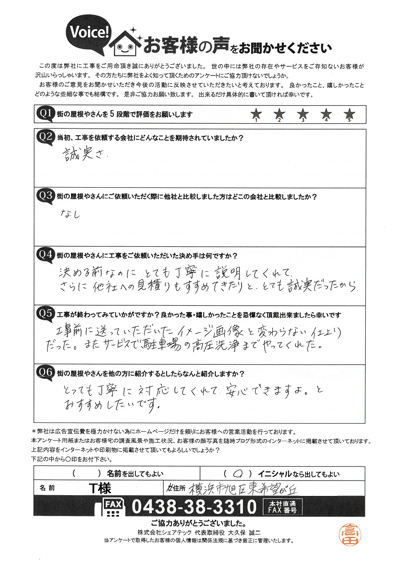 Voice!
お客様の声をお聞かせください
この度は弊社に工事をご用命頂き誠にありがとうございました。世の中には弊社の存在やサービスをご存知ないお客様が
沢山いらっしゃいます。その方たちに弊社をよく知って頂くためのアンケートにご協力頂けないでしょうか。
お客様のご意見をお聞かせいただき今後の活動に反映させていただきたいと考えております。良かったこと、嬉しかったこと
どのような些細な事でも結構です。是非ご協力お願い致します。出来るだけ具体的に書いて頂ければ幸いです。
Q1 街の屋根やさんを5段階で評価をお願いします ★ ★ ★ ★ ★
Q2 当初、工事を依頼する会社にどんなことを期待されていましたか?
誠実さ
Q3 街の屋根やさんにご依頼いただく際に他社と比較しました方はどこの会社と比較しましたか?
なし
Q4 街の屋根やさんに工事をご依頼いただいた決め手は何ですか?
決める前なのに とても丁寧に説明してくれて、
さらに他社への見積りもすすめてきたりと、とても誠実だったから
Q5 工事が終わってみていかがですか?良かった事・嬉しかったことを忌憚なく頂戴出来ましたら幸いです
工事前に送っていただいたイメージ画像と変わらない仕上り
だった。またサービスで駐車場の高圧洗浄までやってくれた。
Q6 街の屋根やさんを他の方に紹介するとしたらなんと紹介しますか?
とっても丁寧に対応してくれて、安心できますよ。と
おすすめしたいです。
＊弊社は広告宣伝費を極力かけない為にホームページだけを頼りにお客様への営業活動を行っております。
本アンケート用紙またはお客様宅の調査風景や施工状況、お客様の顔写真を随時ブログ形式のインターネットに掲載させて頂いております。
上記内容をインターネットや印刷物に掲載させて頂いてもよろしいでしょうか?
下記の中から〇印をお付下さい。
( ) 名前を出してもよい ( 〇 ) イニシャルなら出してもよい
名前 T様 ご住所 横浜市旭区東希望が丘
FAX 0438-38-3310 本社直通 FAX番号
ご協力ありがとうございました。
株式会社シェアテック 代表取締役 大久保 誠二
当アンケートで取得したお客様の個人情報は関係法規に基づき厳正に管理いたします。